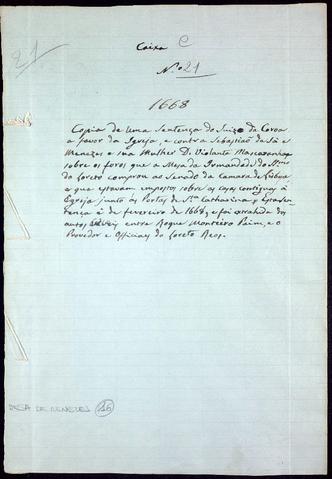 21
Caixa C
Nº 21
1668
Copia de uma Sentença do Juizo da Coroa
a favor da Igreja, e contra Sebastião de Sá e
Menezes e sua Mulher D. Violante Mascarenhas
sobre os foros que a Mesa da Irmandade do
do Loreto comprou ao Senado da Camara de Lisboa
e que estavam impostos sobre as casas contiguas á
Egreja junto ás Portas de Sta Catharina; esta sen-
tença é de fevereiro de 1668; e foi extrahida dos
autos civeis entre Roque Monteiro Paim, e o
Provedor e Officiaes do Loreto Reos.
16